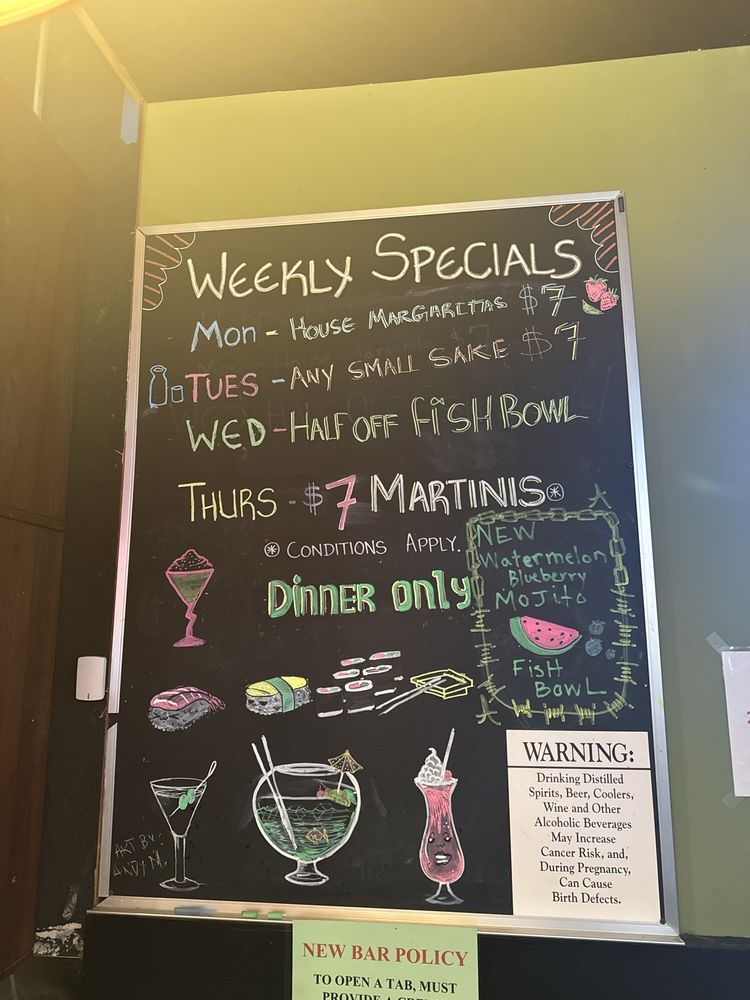 WEEKLY SPECIALS
Mon - HOUSE MARGARITAS $7
TUES - ANY SMALL SAKE $7
WED - HALF OFF FiSH BOWL
THURS - $7 MARTINIS*
* CONDITIONS APPLY.
DinnER only
NEW
Watermelon
Blueberry
MoJito
FisH
BowL
ART BY:
ANDY M.
WARNING:
Drinking Distilled
Spirits, Beer, Coolers,
Wine and Other
Alcoholic Beverages
May Increase
Cancer Risk, and,
During Pregnancy,
Can Cause
Birth Defects.
NEW BAR POLICY
TO OPEN A TAB, MUST